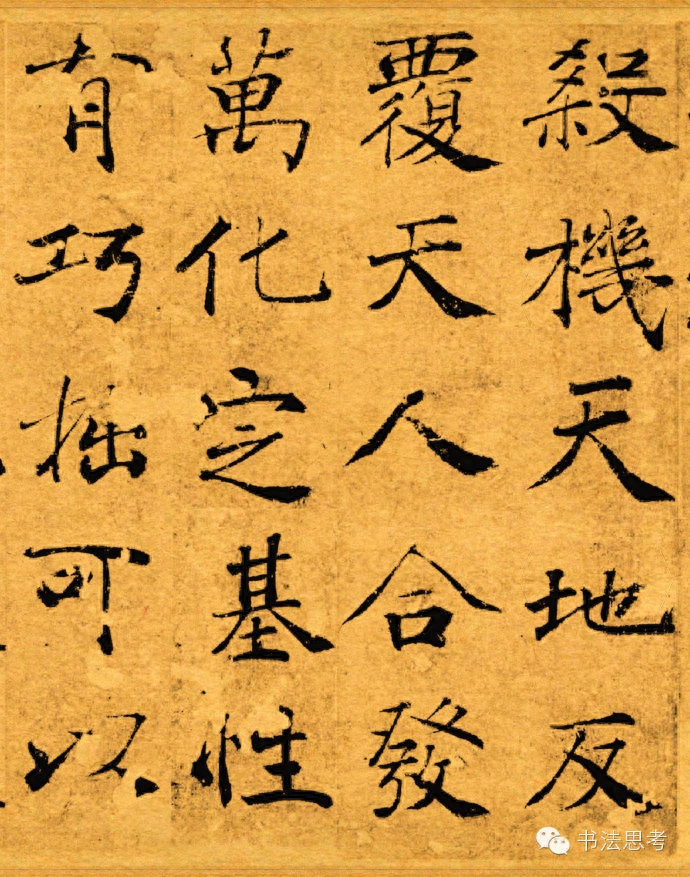 殺機天地反
覆天人合發
萬化定基性
有巧拙可以
书法思考